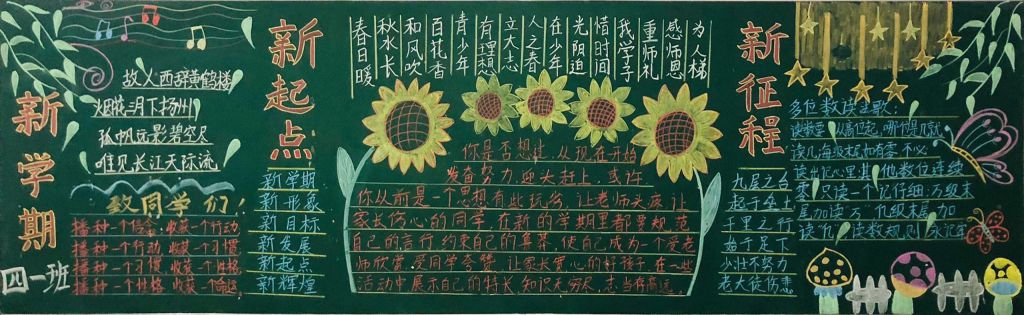 新学期
四一班
故人西辞黄鹤楼
烟花三月下扬州
孤帆远影碧空尽
唯见长江天际流
致同学们!
播种一个信念,收获一个行动
播种一个行动 收获一个习惯
播种一个习惯,收获一个性格
播种一个性格 收获一个命运
新起点
新学期
新形象
新目标
新发展
新起点
新辉煌
春日暖
秋水长
和风吹
百花香
青少年
有理想
立大志
人之春
在少年
光阴迫
惜时间
我学子
重师礼
感师恩
为人梯
你是否想过,从现在开始
发奋努力,迎头赶上,或许
你从前是一个思想有些玩劣,让老师头疼,让
家长伤心的同学,在新的学期里都要规范
自己的言行,约束自己的鲁莽,使自己成为一个受老
师欣赏,受同学夸赞,让家长宽心的好孩子,在一些
活动中展示自己的特长,知识无穷尽,志当存高远。
新征程
九层之台
起于垒土
千里之行
始于足下
少壮不努力
老大徒伤悲
多位数读法歌:
读数要从高位起,哪位是几就
读几,每级末尾如有零不必
读出记心里,其他数位连续
零,只读一个记仔细,万级末
尾加读万,亿级末尾加
读亿,读数规则永记牢